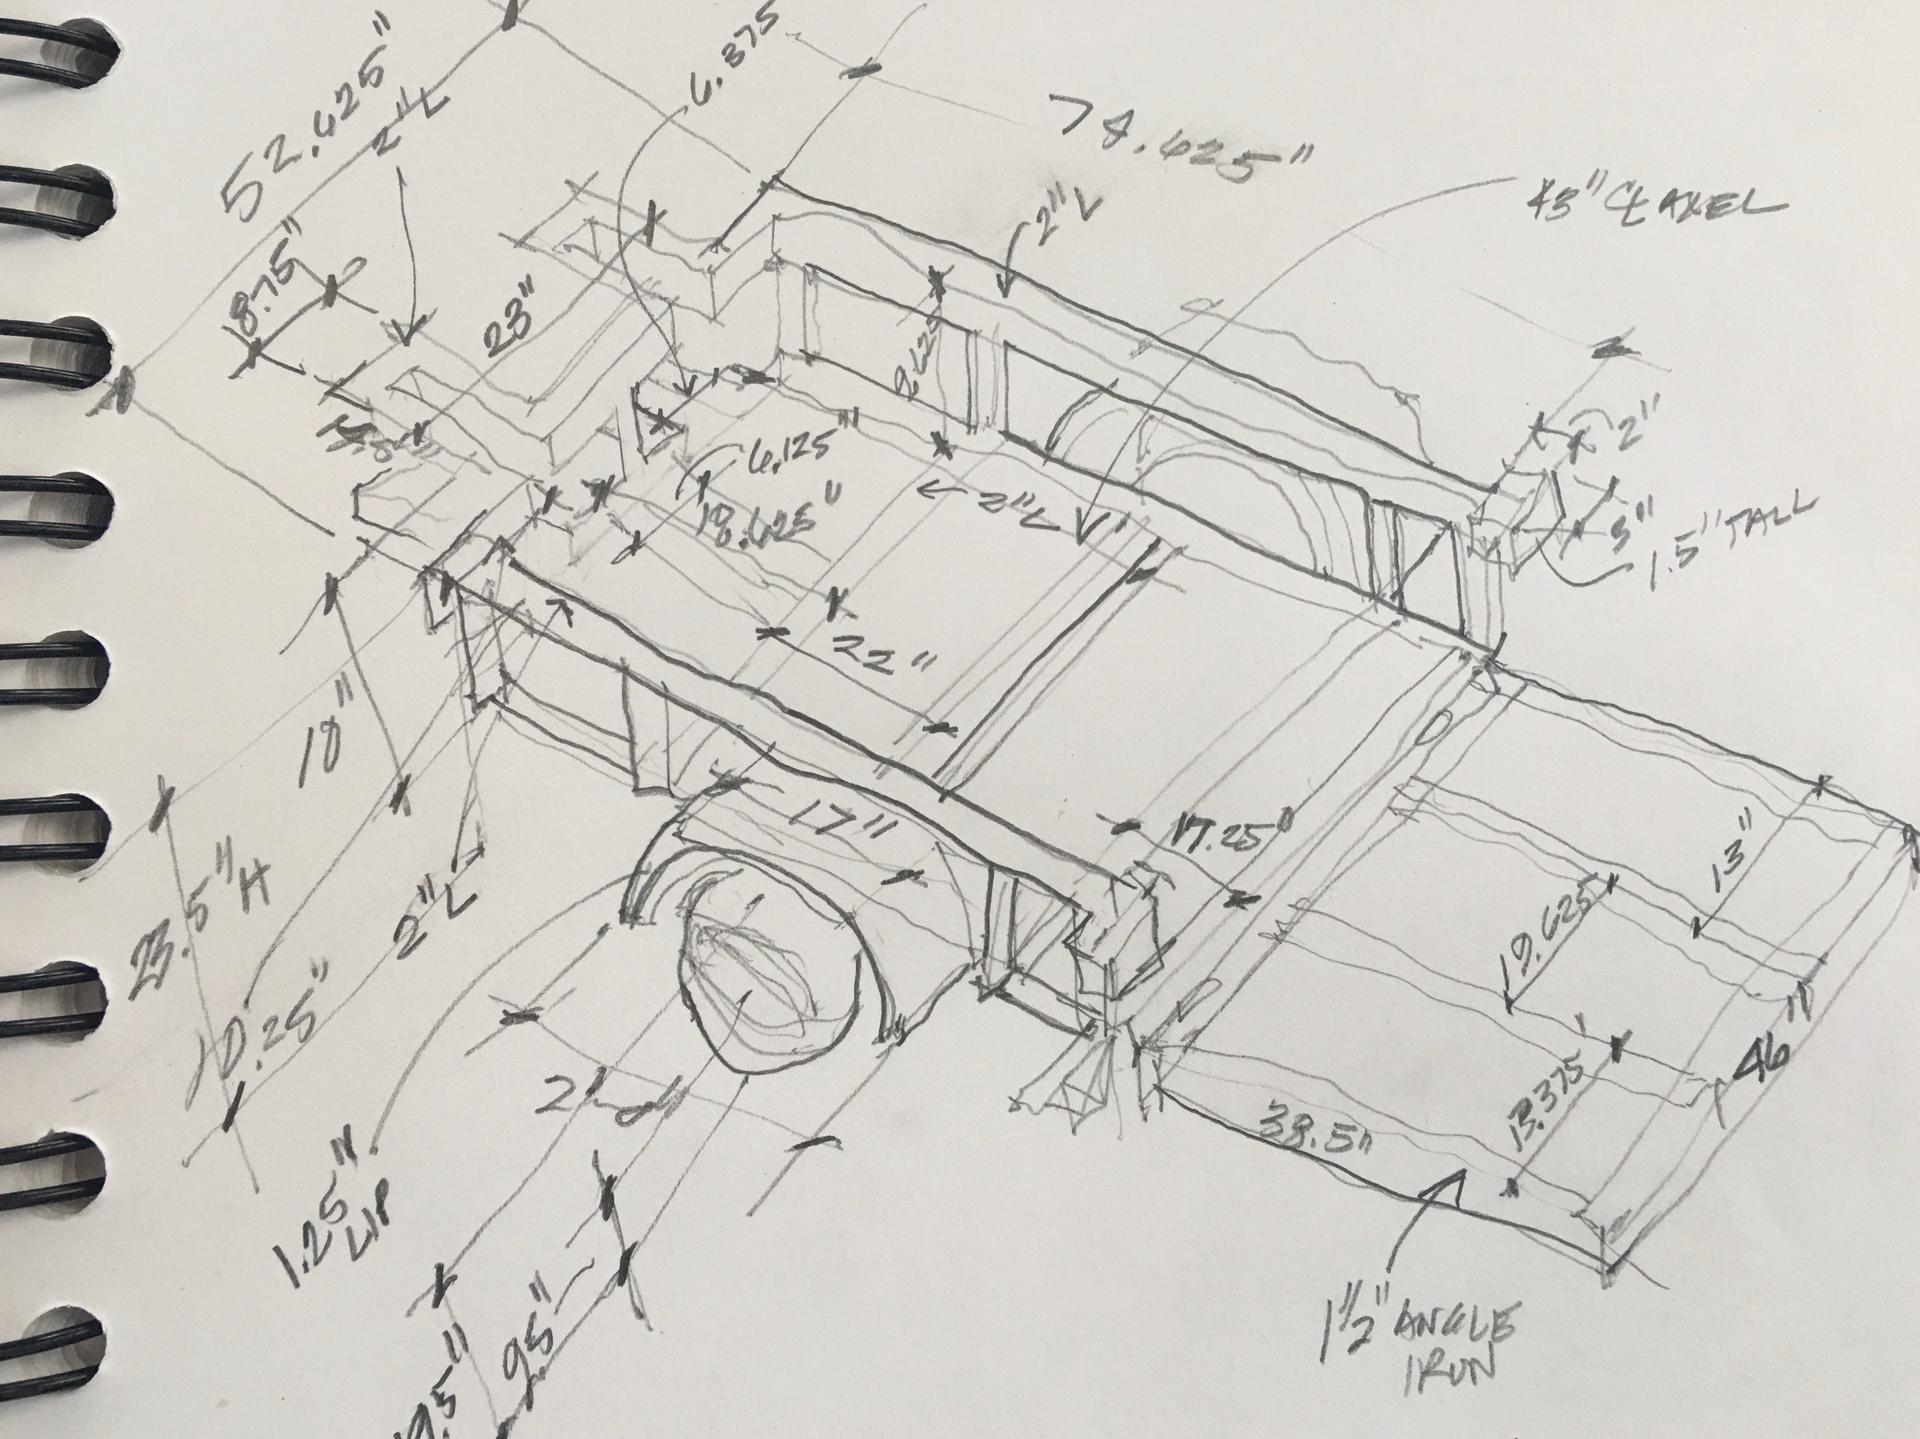 52.625"
2"L
6.375
78.625"
2"L
43" C͟L AXEL
18.75"
23"
9.625
2"
3"
1.5" TALL
6.125"
18.625"
2"L
22"
18"
17"
17.25"
13"
19.625
23.5"H
2"L
10.25"
46"
13.375
38.5"
1.25"
LIP
9.5"
1 1/2" ANGLE
IRON